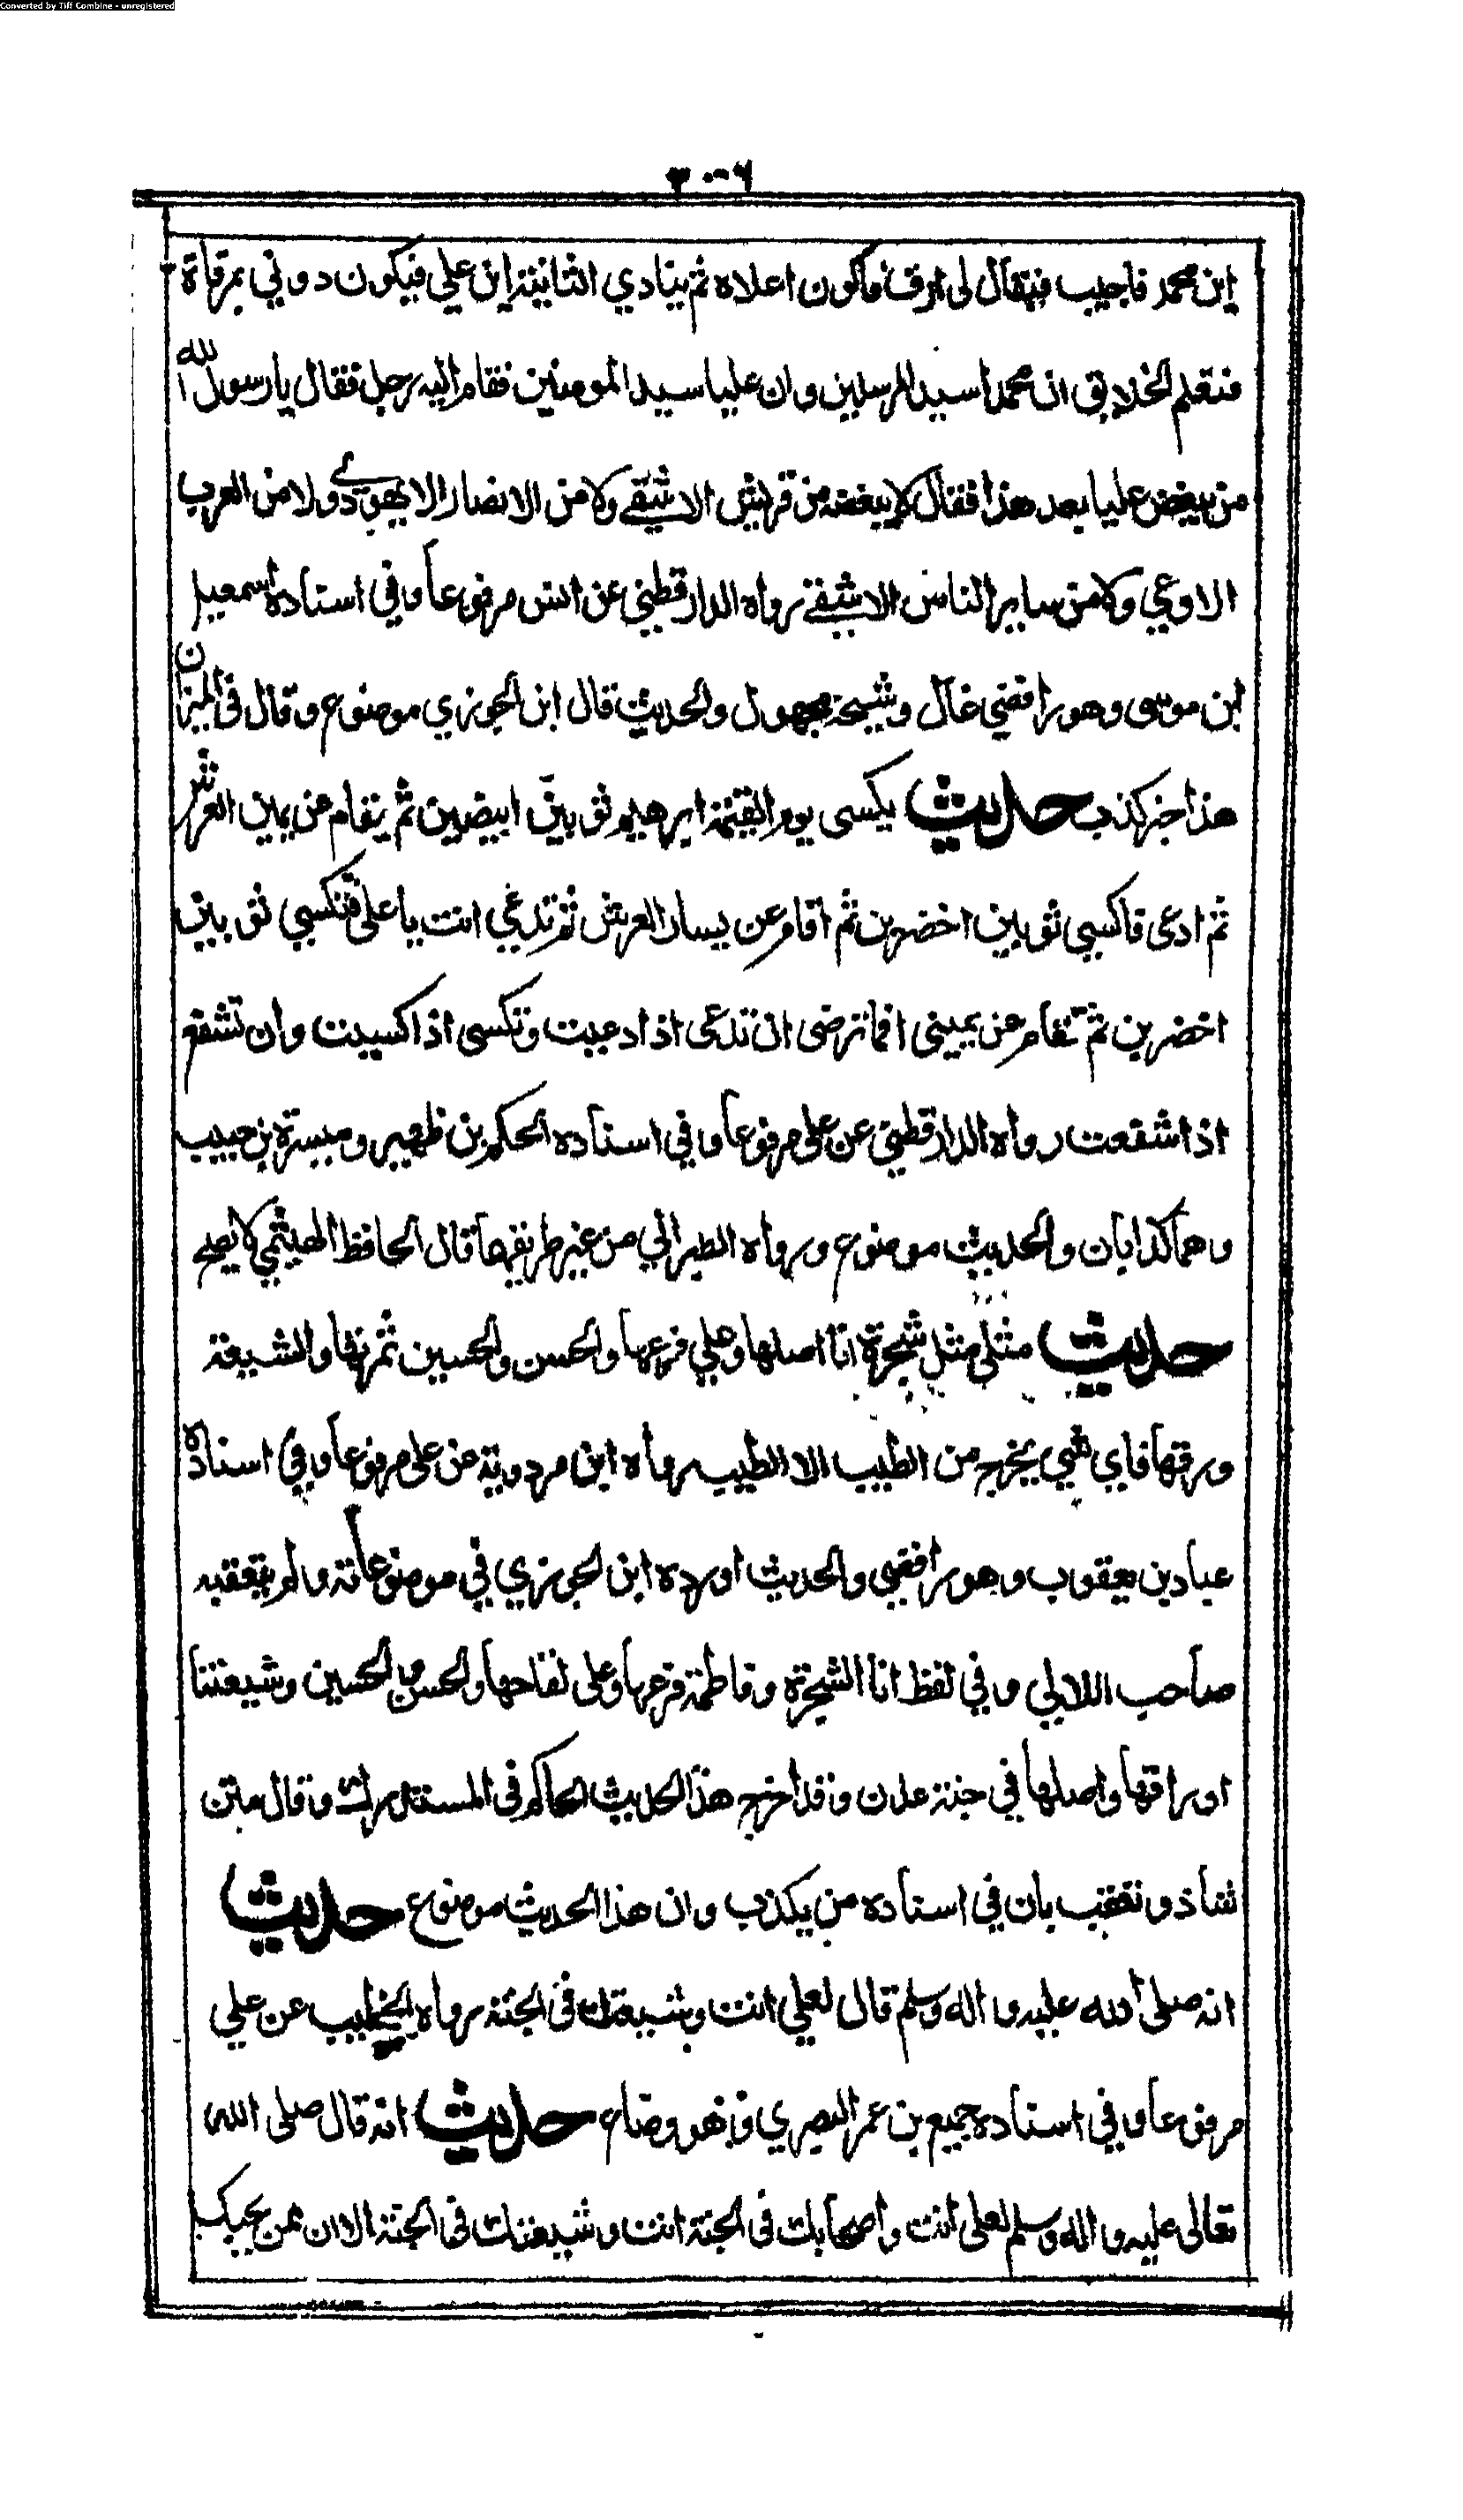 Converted by Tiff Combine - unregistered
٣٠٦
اين محمد فاجيب فيقال لى ارق فاكون اعلاه ثم ينادي الثانية اين علي فيكون دوني بمرقاة
فتعلم الخلايق ان محمدا سيد المرسلين وان عليا سيد المومنين فقام اليه رجل فقال يا رسول الله
من يبغض عليا بعد هذا فقال لا يبغضه من قريش الا شقي ولا من الانصار الا يهودي ولا من العرب
الا دعي ولا من ساير الناس الا شقي رواه الدارقطني عن انس مرفوعا وفي اسناده اسمعيل
ابن موسى وهو رافضي غال وشيخه مجهول والحديث قال ابن الجوزي موضوع وقال في الميزان
هذا خبر كذب حديث يكسى يوم القيمة ابرهيم ثوبين ابيضين ثم يقام عن يمين العرش
ثم ادعى فاكسي ثوبين اخضرين ثم اقام عن يسار العرش ثم تدعي انت يا على فتكسي ثوبين
اخضرين ثم تقام عن يميني افما ترضى ان تدعى اذا دعيت وتكسى اذا كسيت وان تشفع
اذا شفعت رواه الدارقطني عن على مرفوعا وفي اسناده الحكم بن ظهير وميسرة بن حبيب
وهما كذابان والحديث موضوع ورواه الطبراني من غير طريقهما قال الحافظ الهيثمي لا يصح
حديث مثلى مثل شجرة انا اصلها وعلي فرعها والحسن والحسين ثمرتها والشيعة
ورقها فاي شي يخرج من الطيب الا الطيب رواه ابن مردويه عن على مرفوعا وفي اسناده
عباد بن يعقوب وهو رافضي والحديث اورده ابن الجوزي في موضوعاته ولم يتعقبه
صاحب اللالي وفي لفظ انا الشجرة وفاطمة فرعها وعلى لقاحها والحسن والحسين وشيعتنا
اوراقها واصلها في جنة عدن وقد اخرج هذا الحديث الحاكم في المستدرك وقال متن
شاذ وتعقب بان في اسناده من يكذب وان هذا الحديث موضوع حديث
انه صلى الله عليه واله وسلم قال لعلي انت وشيعتك في الجنة رواه الخطيب عن علي
مرفوعا وفي اسناده جميع بن عمر البصري وهو وضاع حديث انه قال صلى الله
تعالى عليه واله وسلم لعلى انت واصحابك في الجنة انت وشيعتك في الجنة الا ان ممن يحبك